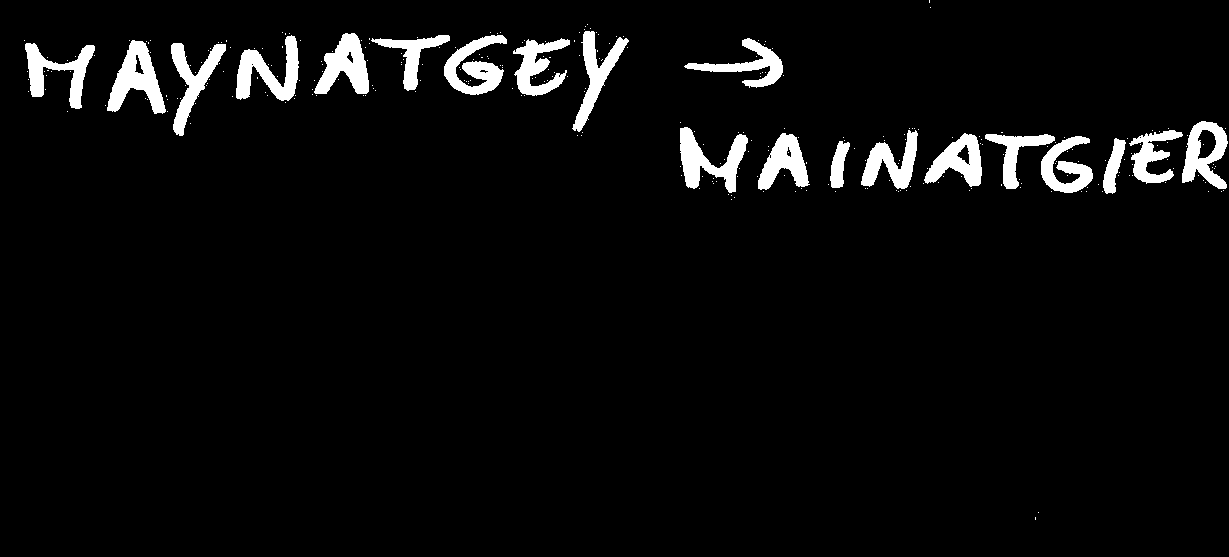 MAYNATGEY →
MAINATGIER